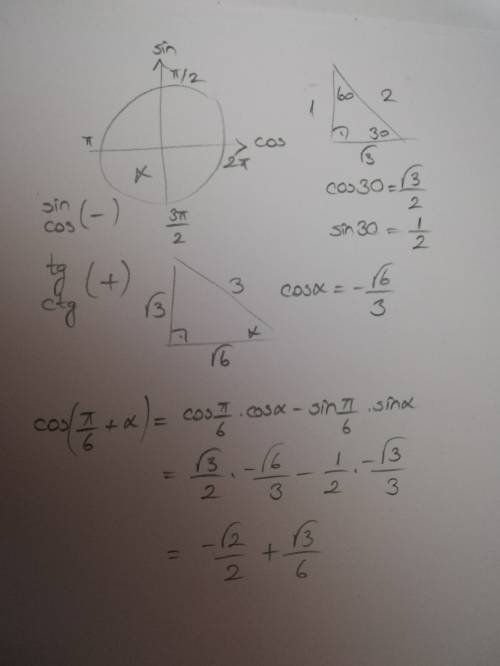 sin
π/2
π
cos
2π
α
3π/2
sin
cos (-)
1
60
2
30
√3
cos30=√3/2
sin30=1/2
tg
ctg (+)
√3
3
α
√6
cosα=-√6/3
cos(π/6+α)= cosπ/6·cosα-sinπ/6·sinα
= √3/2·-√6/3-1/2·-√3/3
= -√2/2+√3/6